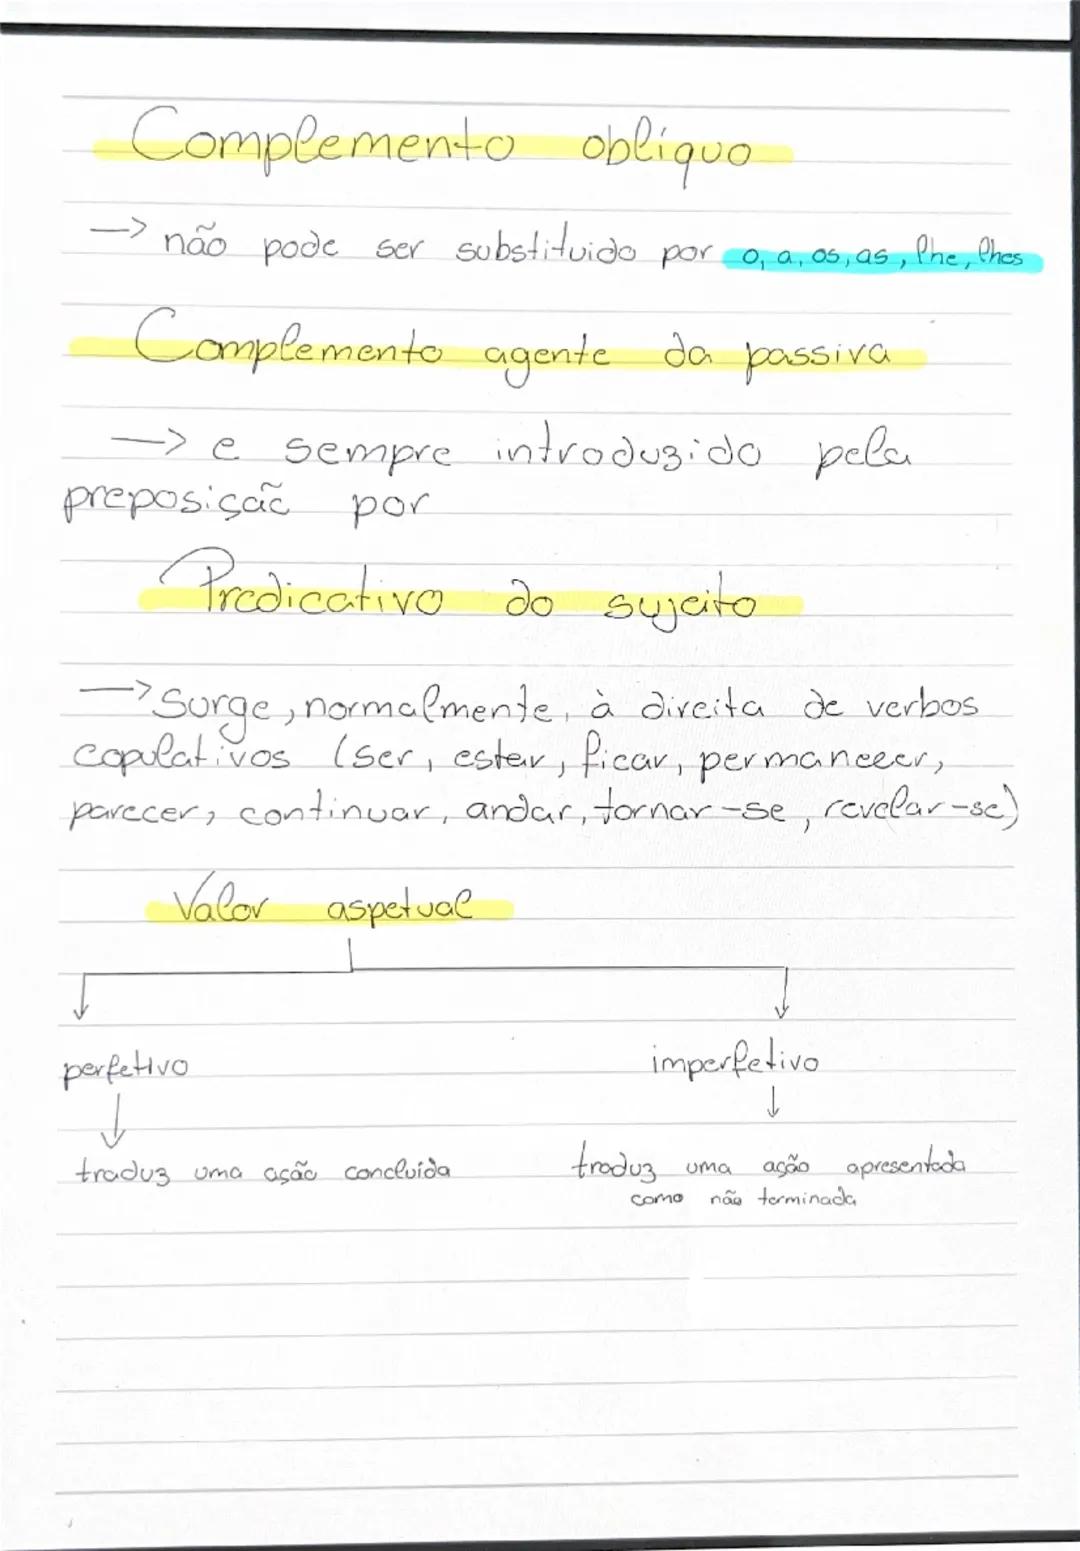 Complemento oblíquo
-> não pode ser substituido por o, a, os, as, lhe, lhes
Complemento agente da passiva
-> e sempre introduzido pela
preposição por
Predicativo do sujeito
-> Surge, normalmente, à direita de verbos
copulativos (ser, estar, ficar, permanecer,
parecer, continuar, andar, tornar-se, revelar-se)
Valor aspetual
perfetivo imperfetivo
traduz uma ação concluída traduz uma ação apresentada
como não terminada